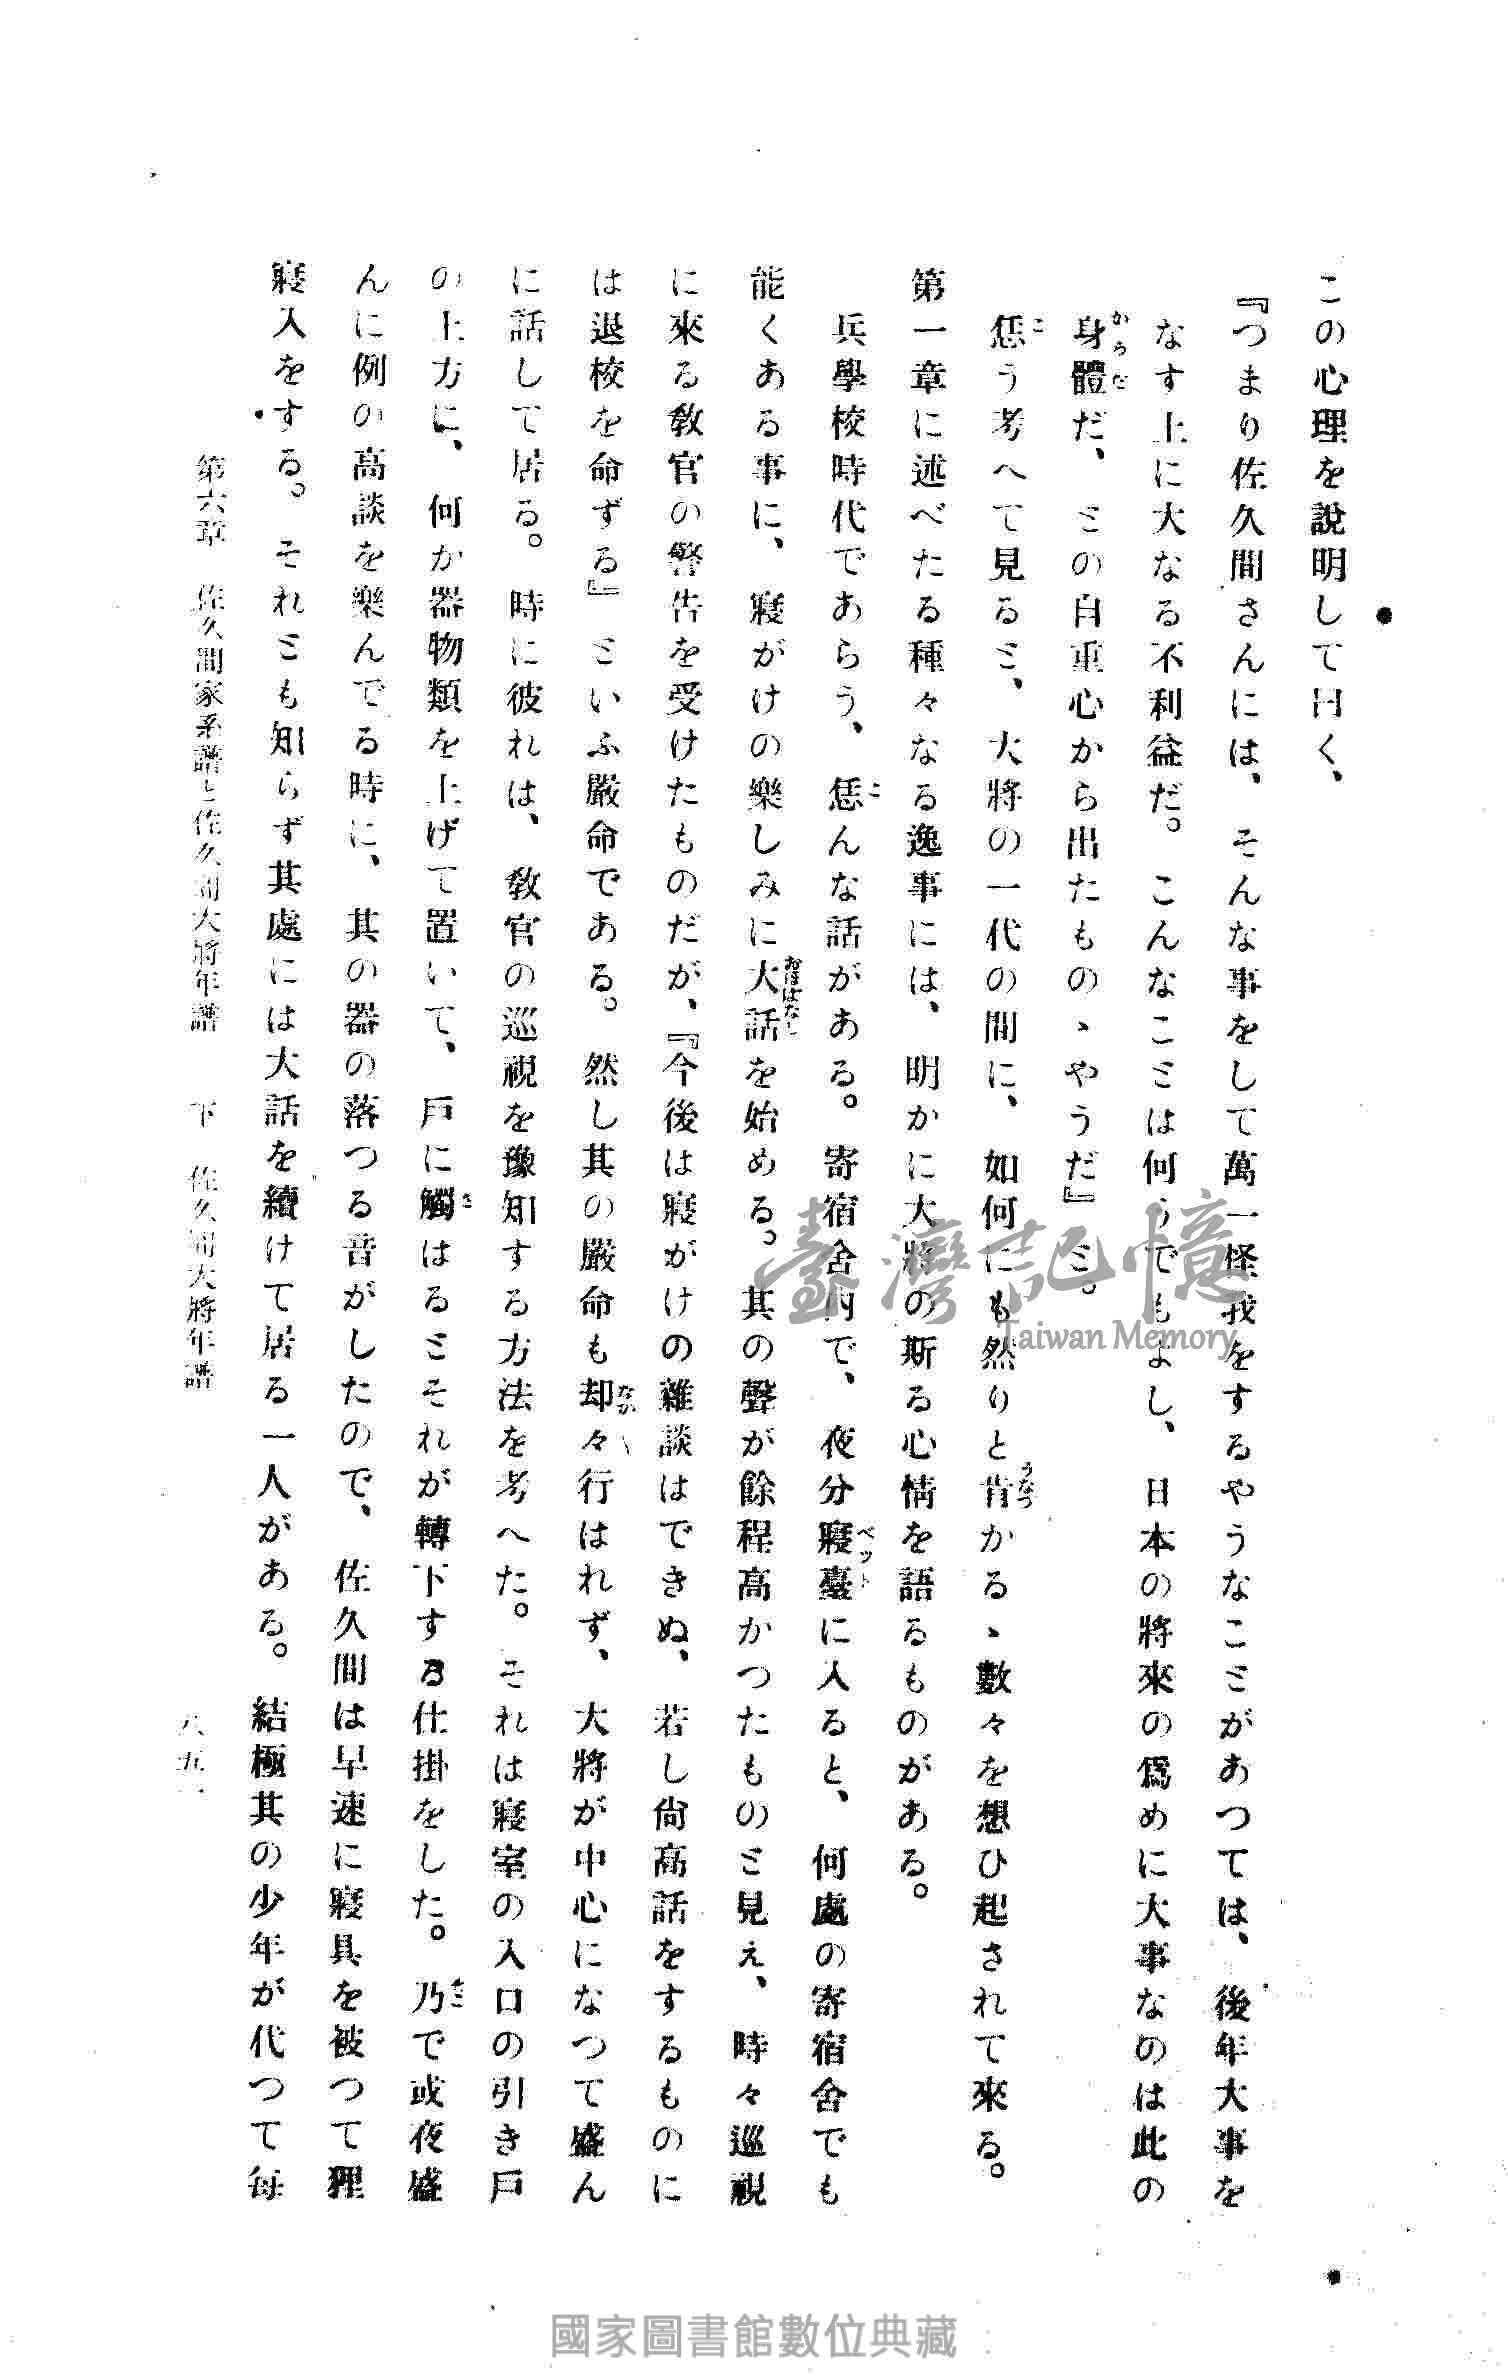 この心理を說明して曰く、
『つまり佐久間さんには、そんな事をして萬一怪我をするやうなことがあつては、後年大事を
なす上に大なる不利益だ。こんなことは何うでもよし、日本の將來の爲めに大事なのは此の
身體だ、との自重心から出たものゝやうだ』と。
恁う考へて見ると、大將の一代の間に、如何にも然りと肯かるゝ數々を想ひ起されて來る。
第一章に述べたる種々なる逸事には、明かに大將の斯る心情を語るものがある。
兵學校時代であらう、恁んな話がある。寄宿舍內で、夜分寢臺に入ると、何處の寄宿舍でも
能くある事に、寢がけの樂しみに大話を始める。其の聲が餘程高かつたものと見え、時々巡視
に來る敎官の警告を受けたものだが、『今後は寢がけの雜談はできぬ、若し尙高話をするものに
は退校を命ずる』といふ嚴命である。然し其の嚴命も却々行はれず、大將が中心になつて盛ん
に話して居る。時に彼れは、敎官の巡視を豫知する方法を考へた。それは寢室の入口の引き戶
の上方に、何か器物類を上げて置いて、戶に觸はるとそれが轉下する仕掛をした。乃で或夜盛
んに例の高談を樂んでる時に、其の器の落つる音がしたので、佐久間は早速に寢具を被つて狸
寢入をする。それとも知らず其處には大話を續けて居る一人がある。結極其の少年が代つて每
第六章 佐久間家系譜と佐久間大將年譜 下 佐久間大將年譜
八五一
臺灣記憶
Taiwan Memory
國家圖書館數位典藏